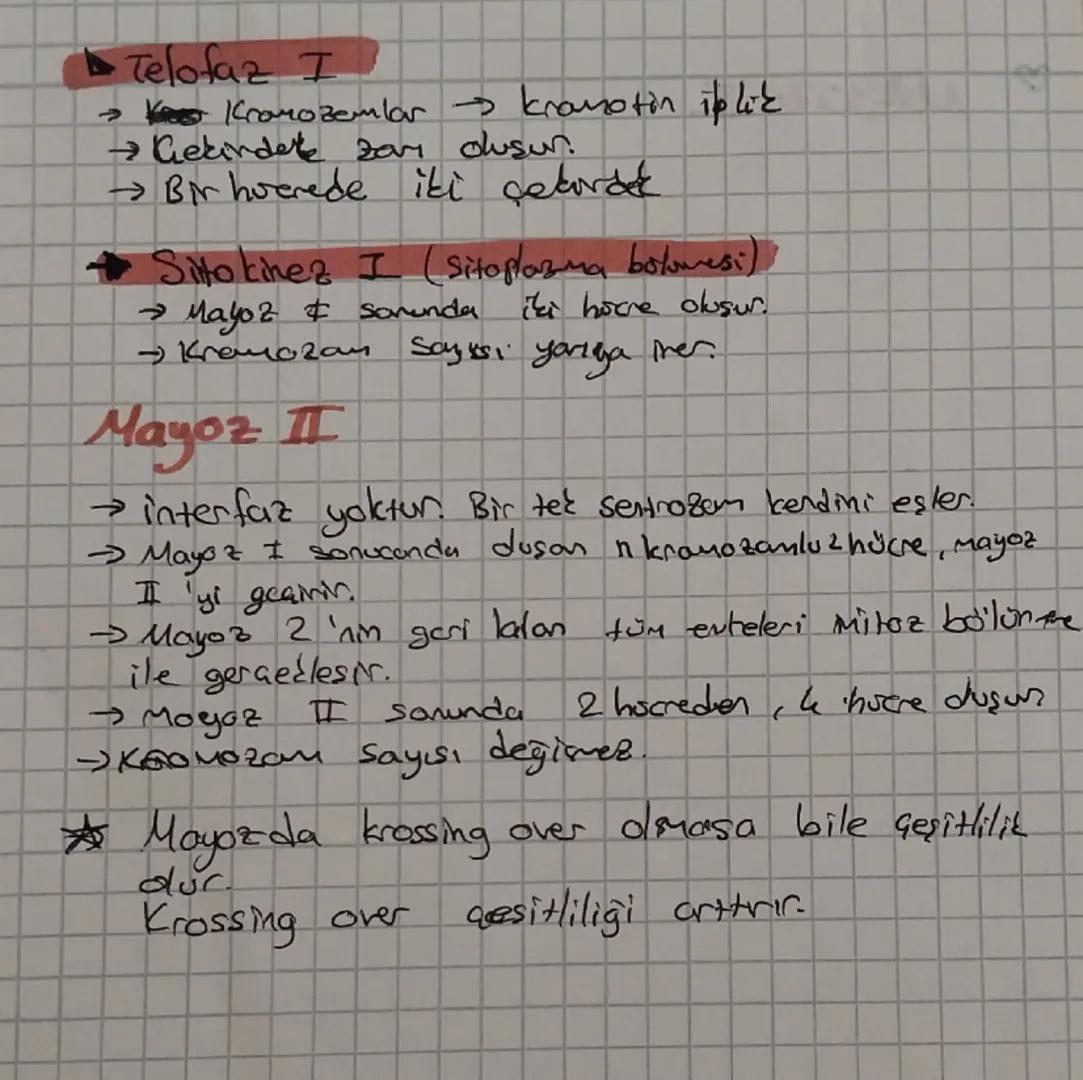 Telofaz I
→ Kromozomlar → kromotin iplik
→ Çekirdek zarı oluşur.
→ Bir hücrede iki çekirdek
→ Sitokinez I (Sitoplazma bölünmesi)
→ Mayoz I sonunda iki hücre oluşur.
→ Kromozom sayısı yarıya iner.
Mayoz II
→ interfaz yoktur. Bir tek sentrozom kendini eşler.
→ Mayoz I sonucunda oluşan n kromozomlu 2 hücre, mayoz
II 'yi geçirir.
→ Mayoz 2 'nin geri kalan tüm evreleri mitoz bölünme
ile gerçekleşir.
→ Mayoz II sonunda 2 hücreden, 4 hücre oluşur
→ Kromozom sayısı değişmez.
☆ Mayozda krossing over olmasa bile çeşitlilik
olur.
Krossing over çeşitliliği arttırır.